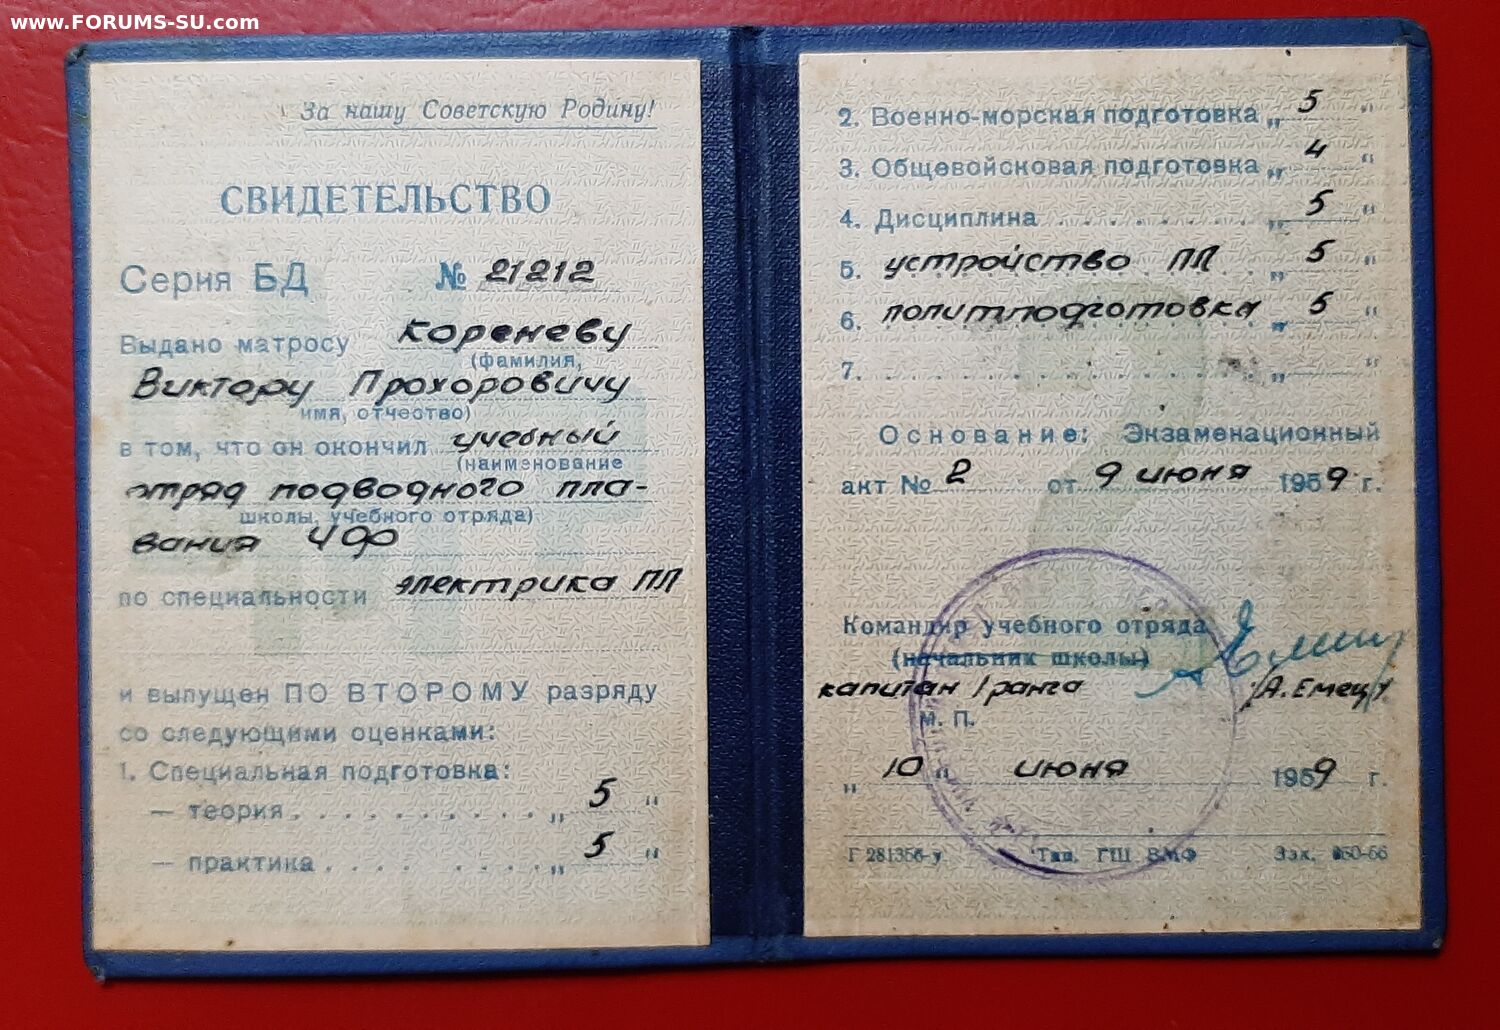 www.FORUMS-SU.com
За нашу Советскую Родину!
СВИДЕТЕЛЬСТВО
Серия БД № 21212
Выдано матросу Кореневу
(фамилия,
Виктору Прохоровичу
имя, отчество)
в том, что он окончил учебный
(наименование
отряд подводного пла-
школы, учебного отряда)
вания ЧФ
по специальности электрика ПЛ
и выпущен ПО ВТОРОМУ разряду
со следующими оценками:
1. Специальная подготовка:
— теория . . . . . . . . . . „ 5 “
— практика . . . . . . . . . „ 5 “
2. Военно-морская подготовка „ 5 “
3. Общевойсковая подготовка „ 4 “
4. Дисциплина . . . . . . . . . „ 5 “
5. устройство ПЛ „ 5 “
6. политподготовка „ 5 “
7. . . . . . . . . . . . . . . „ “
Основание: Экзаменационный
акт № 2 от 9 июня 1959 г.
Командир учебного отряда
(начальник школы)
капитан 1 ранга /А. Емец/
М. П.
„ 10 “ июня 1959 г.
Г 281356-у Тип. ГШ ВМФ Зак. 650-56